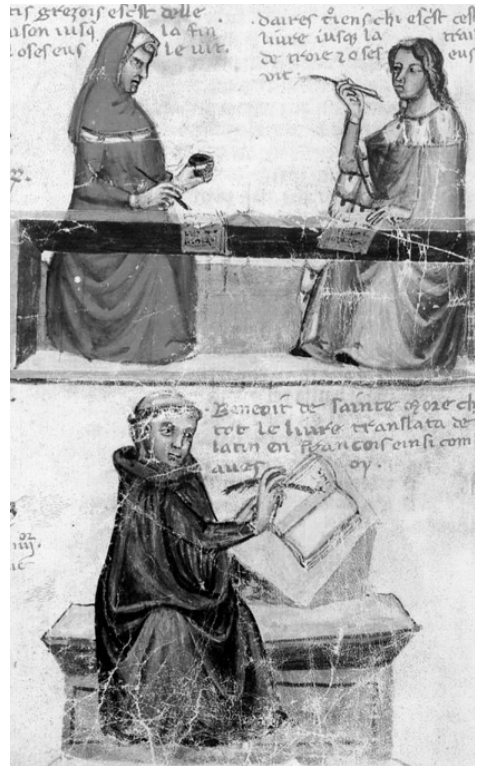 tis grezois escst delle
ison iusq. la fin
oses eus le uit.
daires toiens chi escst cest
liure iusq la trai
de troie 2 o ses eus
vit
Beneoit de sainte more ch
tot le liure translata de
latin en francois einsi com
aues oy.